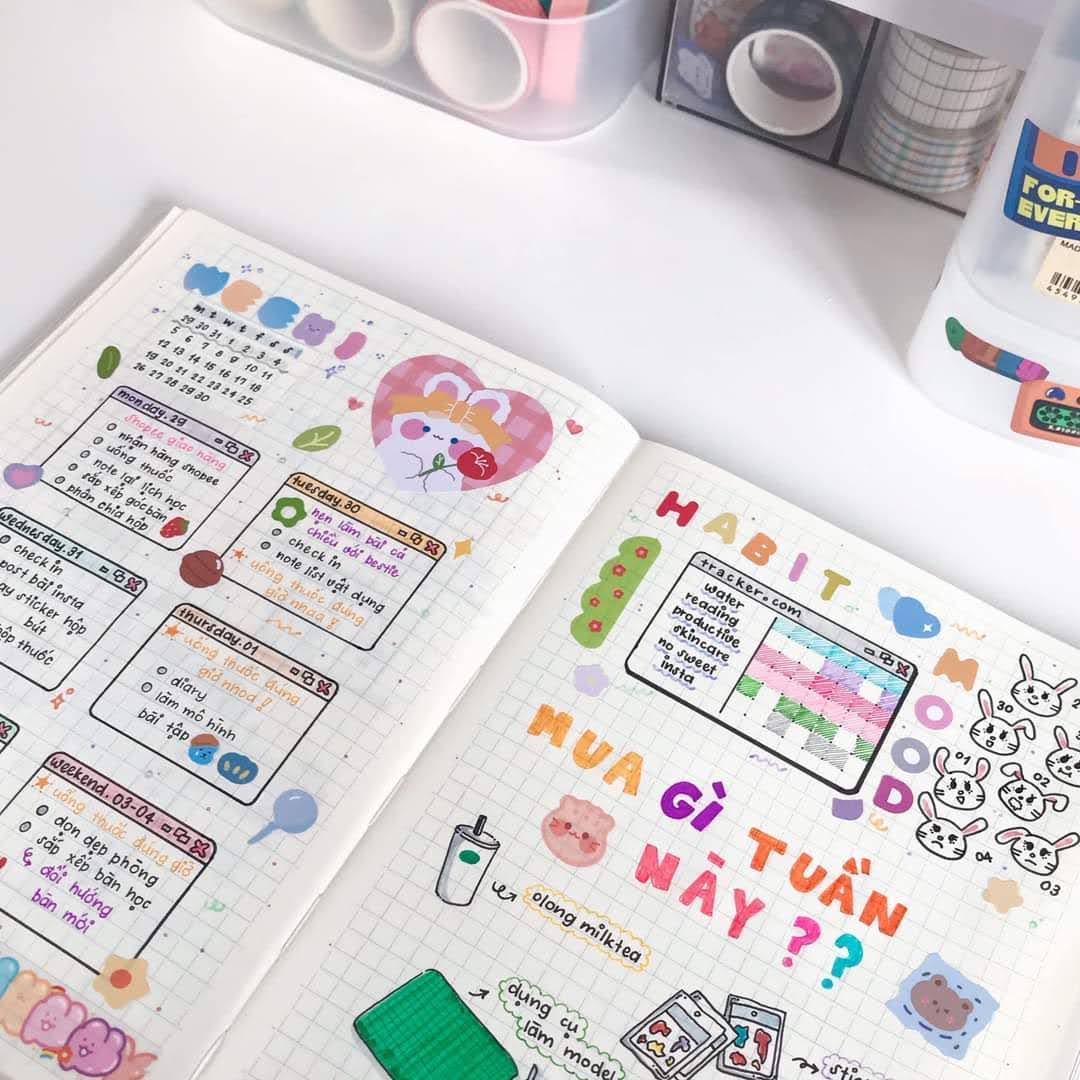 WEEK 1
m t w t f s s
29 30 31 1 2 3 4
5 6 7 8 9 10 11
12 13 14 15 16 17 18
19 20 21 22 23 24 25
26 27 28 29 30
monday.29
shopee giao hàng
nhận hàng shopee
uống thuốc
note lại lịch học
sắp xếp góc bàn
phân chia hộp
tuesday.30
hẹn làm bài cả
chiều với bestie
check in
note list vật dụng
uống thuốc đúng
giờ nhaa!!
wednesday.31
check in
post bài insta
sticker hộp
bút
thuốc
thursday.01
uống thuốc đúng
giờ nhoa!!
diary
làm mô hình
bài tập
weekend.03-04
uống thuốc đúng giờ
dọn dẹp phòng
sắp xếp bàn học
đổi hướng
bàn mới
HABIT
tracker.com
water
reading
productive
skincare
no sweet
insta
MOOD
30
01
02
04
03
MUA GÌ TUẦN
NÀY ??
olong milktea
dụng cụ
làm model
FOR-
EVER
MAD